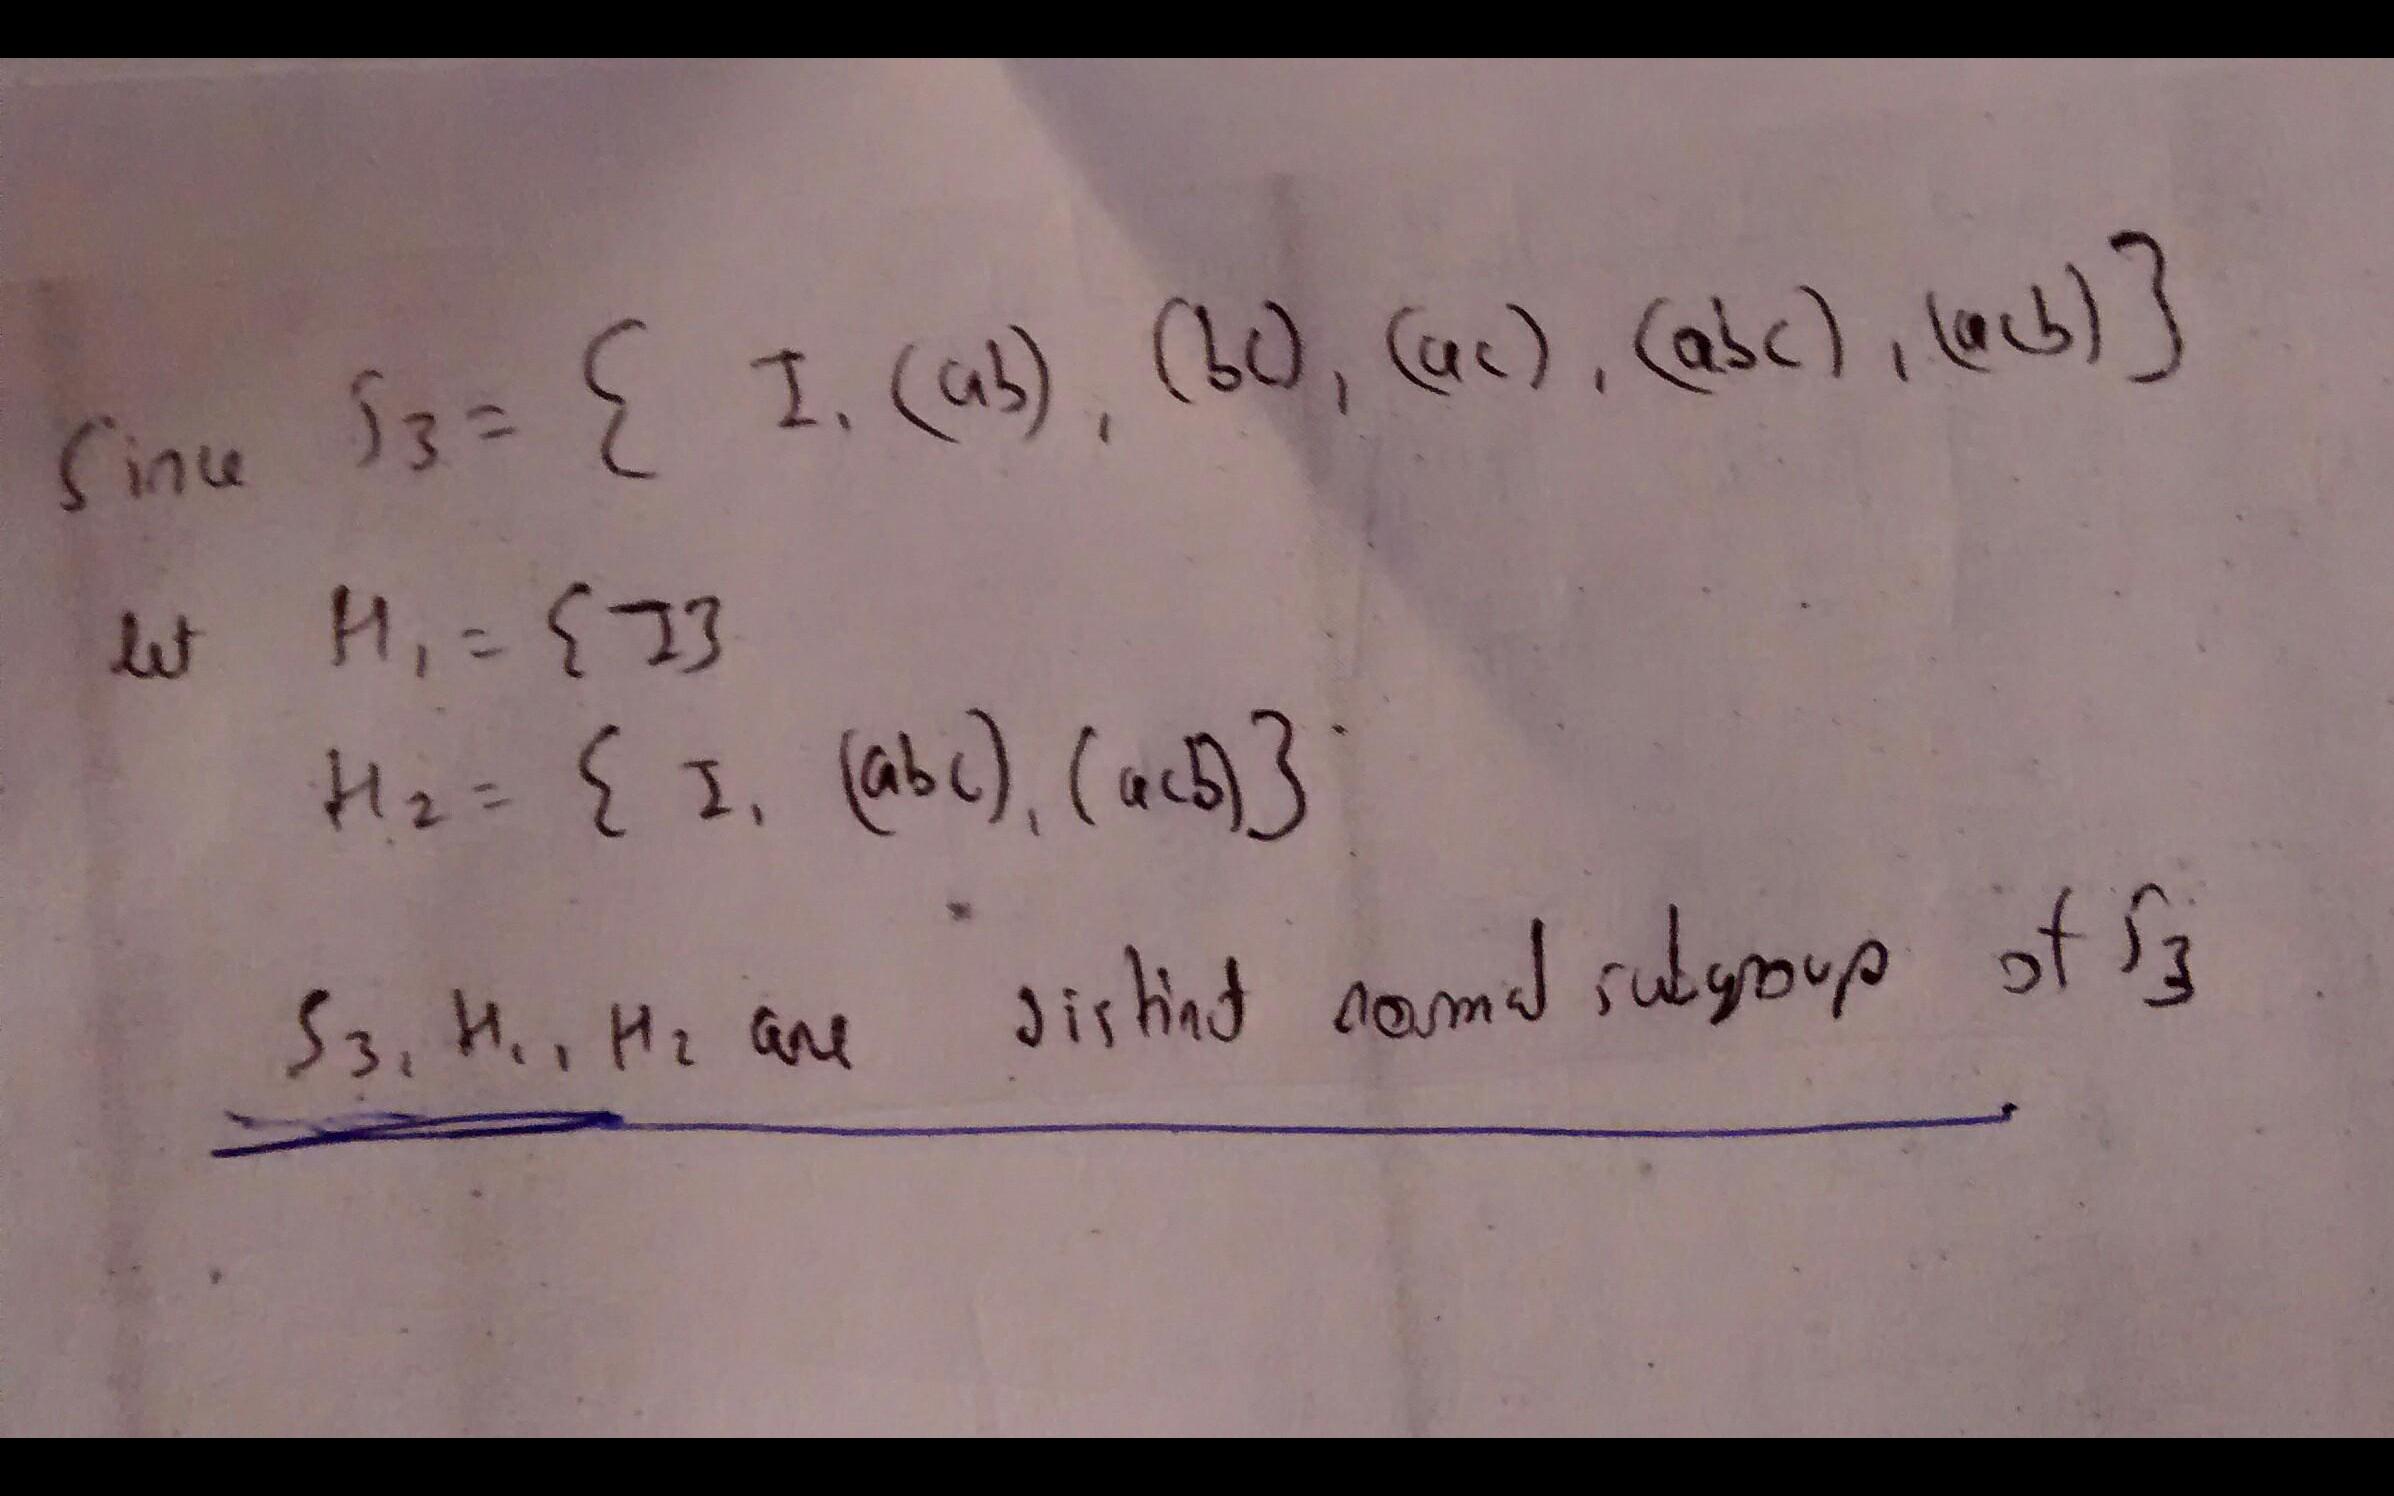 Since S3 = { I, (ab), (bc), (ac), (abc), (acb) }
let H1 = { I }
H2 = { I, (abc), (acb) }
S3, H1, H2 are distinct normal subgroup of S3